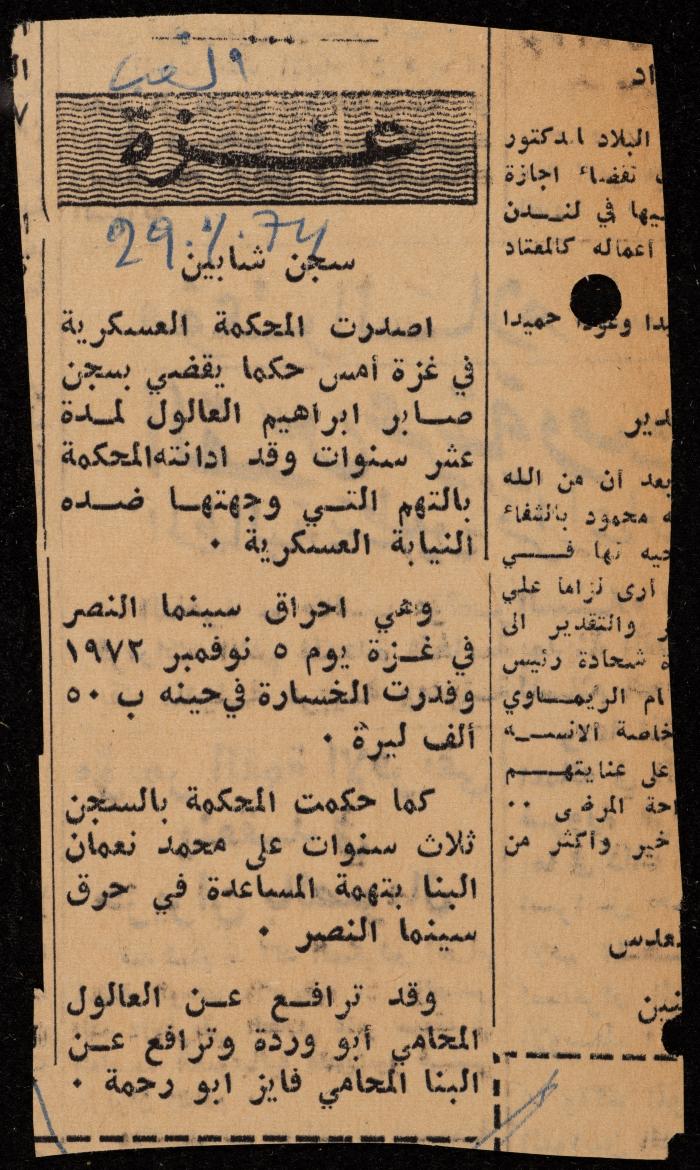 الشعب
غزة
29.1.74
سجن شابين
اصدرت المحكمة العسكرية
في غزة أمس حكما يقضي بسجن
صابر ابراهيم العالول لمدة
عشر سنوات وقد ادانته المحكمة
بالتهم التي وجهتها ضده
النيابة العسكرية ٠
وهي احراق سينما النصر
في غزة يوم ٥ نوفمبر ١٩٧٢
وقدرت الخسارة في حينه ب ٥٠
ألف ليرة ٠
كما حكمت المحكمة بالسجن
ثلاث سنوات على محمد نعمان
البنا بتهمة المساعدة في حرق
سينما النصر ٠
وقد ترافع عن العالول
المحامي أبو وردة وترافع عن
البنا المحامي فايز ابو رحمة ٠
البلاد الدكتور
قضاء اجازة
في لندن
أعماله كالمعتاد
حميدا
بعد أن من الله
محمود بالشفاء
في
أرى لزاما علي
والتقدير الى
شحادة رئيس
الريماوي
خاصة الانسه
على عنايتهم
المرضى ٠٠
خير وأكثر من